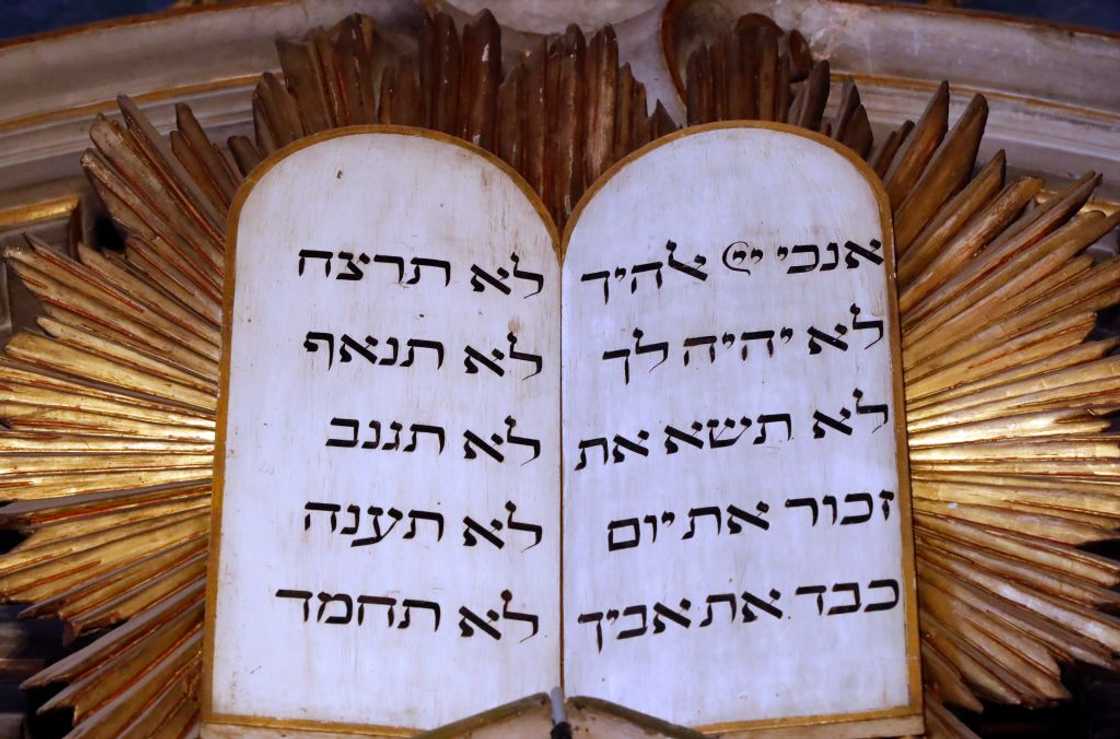 אנכי ייי אלהיך
לא יהיה לך
לא תשא את
זכור את יום
כבד את אביך
לא תרצח
לא תנאף
לא תגנב
לא תענה
לא תחמד